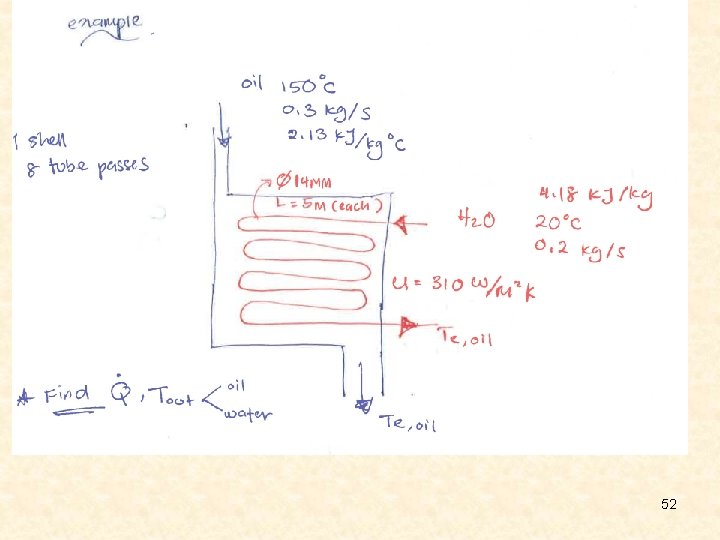 example
oil 150°C
0.3 kg/s
2.13 kJ/kg°C
1 shell
8 tube passes
Ø14MM
L=5M (each)
H2O
4.18 kJ/kg
20°C
0.2 kg/s
U = 310 W/m²K
Te, oil
* Find Q̇, Tout < oil
water
Te, oil
52